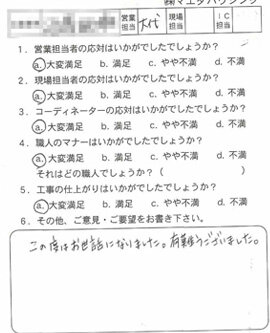 ㈱マエダハウジング
営業担当 現場担当 IC担当
1．営業担当者の応対はいかがでしたでしょうか？
a.大変満足 b. 満足 c. やや不満 d. 不満
2．現場担当者の応対はいかがでしたでしょうか？
a.大変満足 b. 満足 c. やや不満 d. 不満
3．コーディネーターの応対はいかがでしたでしょうか？
a.大変満足 b. 満足 c. やや不満 d. 不満
4．職人のマナーはいかがでしたでしょうか？
a.大変満足 b. 満足 c. やや不満 d. 不満
それはどの職人でしょうか？（ ）
5．工事の仕上がりはいかがでしたでしょうか？
a.大変満足 b. 満足 c. やや不満 d. 不満
6．その他、ご意見・ご要望をお書き下さい。
この度はお世話になりました。有難うございました。